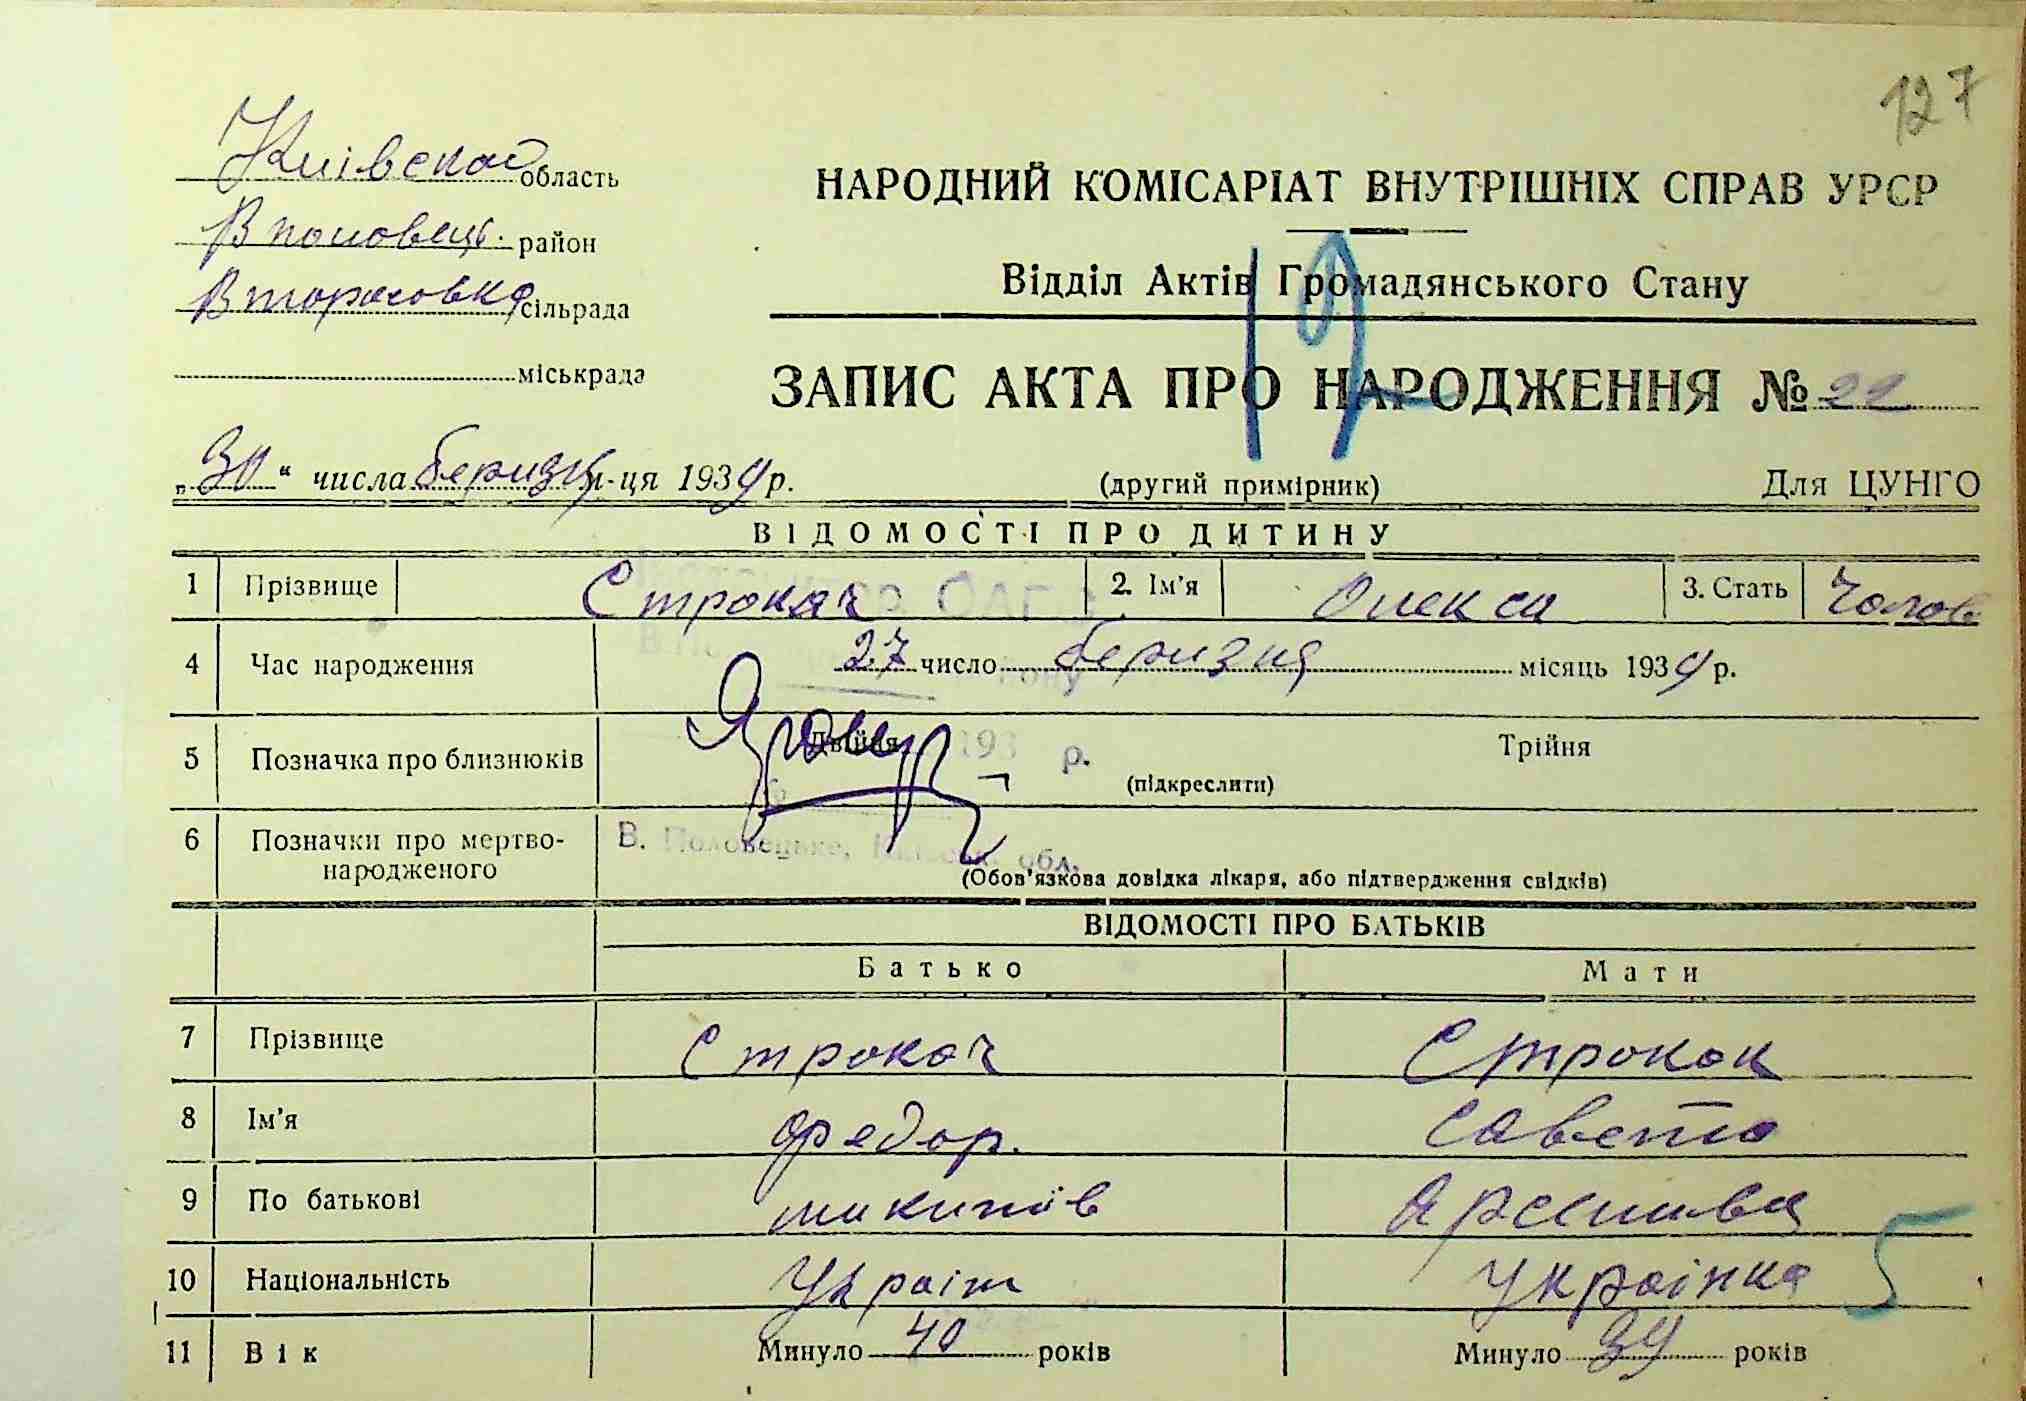 127
Київска область
В половець. район
Вторасовка сільрада
міськрада
НАРОДНИЙ КОМІСАРІАТ ВНУТРІШНІХ СПРАВ УРСР
Відділ Актів Громадянського Стану
19
ЗАПИС АКТА ПРО НАРОДЖЕННЯ № 22
„30“ числа беризня м-ця 1939 р.
(другий примірник)
Для ЦУНГО
ВІДОМОСТІ ПРО ДИТИНУ
1 Прізвище Строкач 2. Ім'я Олекса 3. Стать Чолов
4 Час народження 27 число беризня місяць 1939 р.
5 Позначка про близнюків Двійня Трійня
193 р.
(підкреслити)
6 Позначки про мертво-
народженого
В. Половецьке, Київськ. обл.
(Обов'язкова довідка лікаря, або підтвердження свідків)
ВІДОМОСТІ ПРО БАТЬКІВ
Батько Мати
7 Прізвище Строкач Строкач
8 Ім'я Федор. Савета
9 По батькові микитів
10 Національність Украін Украінка
5
11 Вік Минуло 40 років Минуло 39 років